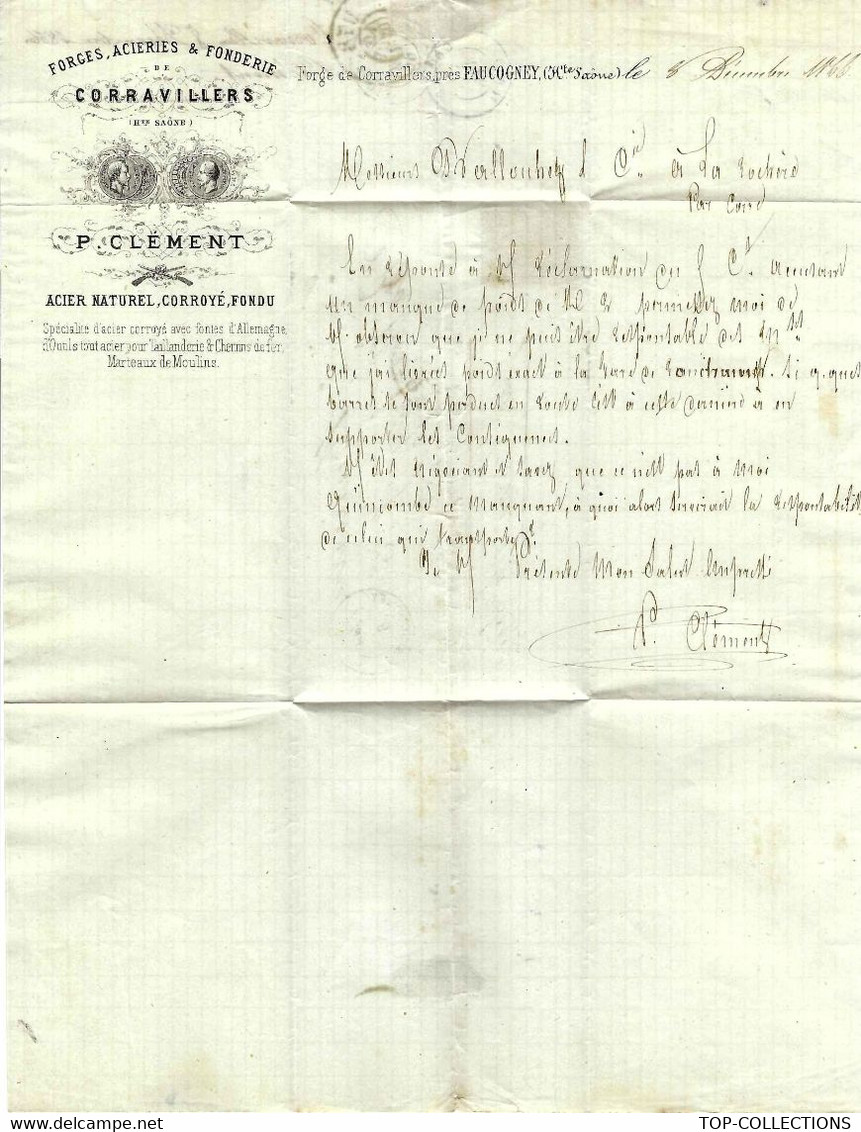 FORGES, ACIERIES & FONDERIE
DE
CORRAVILLERS
(HTE SAÔNE)
P. CLÉMENT
ACIER NATUREL, CORROYÉ, FONDU
Spécialité d'acier corroyé avec fontes d'Allemagne,
d'Outils tout acier pour Taillanderie & Chemins de fer,
Marteaux de Moulins.
Forge de Corravillers, près FAUCOGNEY, (Hte Saône) le 8 Décembre 1866
Messieurs & Cie à La Rochère
Par Corre
En réponse à réclamation du Ct accusant
un manque de poids de K 2 permettez moi de
observer que je ne puis être responsable des
que j'ai livrées poids exact à la Gare de Si q. ques
barres se sont perdues en route c'est à cette dernière à en
supporter les Conséquences.
êtes négociant & savez que ce n'est pas à moi
qu'incombe ce manquant, à quoi alors servirait la responsabilité
de celui qui transporte.
Présente Mon Salut Empressé
P. Clément
TOP-COLLECTIONS